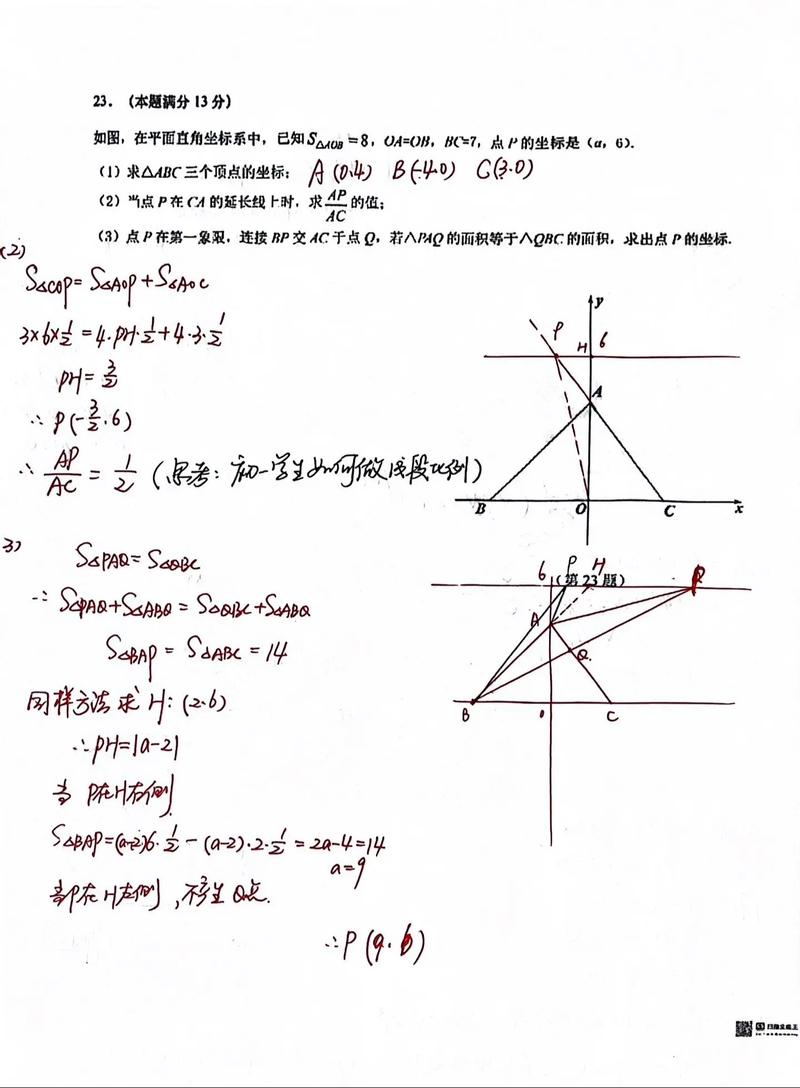 23. (本题满分 13 分)
如图, 在平面直角坐标系中, 已知 S△AOB =8, OA=OB, BC=7, 点 P 的坐标是 (a, 6).
(1) 求△ABC 三个顶点的坐标; A (0.4) B(-4.0) C(3.0)
(2) 当点 P 在 CA 的延长线上时, 求 AP/AC 的值;
(3) 点 P 在第一象限, 连接 BP 交 AC 于点 Q, 若△PAQ 的面积等于△QBC 的面积, 求出点 P 的坐标.
(2)
S△COP = S△AOP + S△AOC
3×6×1/2 = 4·PH·1/2 + 4·3·1/2
PH = 3/2
∴ P(-3/2.6)
∴ AP/AC = 1/2 (思考: 初一学生如何做线段比例)
y
P H 6
A
B O C x
(第 23 题)
3)
S△PAQ = S△QBC
∵ S△PAQ + S△ABQ = S△QBC + S△ABQ
S△BAP = S△ABC = 14
同样方法求 H: (2.6)
∴ PH = |a-2|
当 P在H右侧
S△BAP = (a-2)6·1/2 - (a-2)·2·1/2 = 2a-4 = 14
a=9
当P在H左侧, 不产生 Q点.
∴ P (9.6)
6 P H
A
Q
B 0 C
扫描全能王